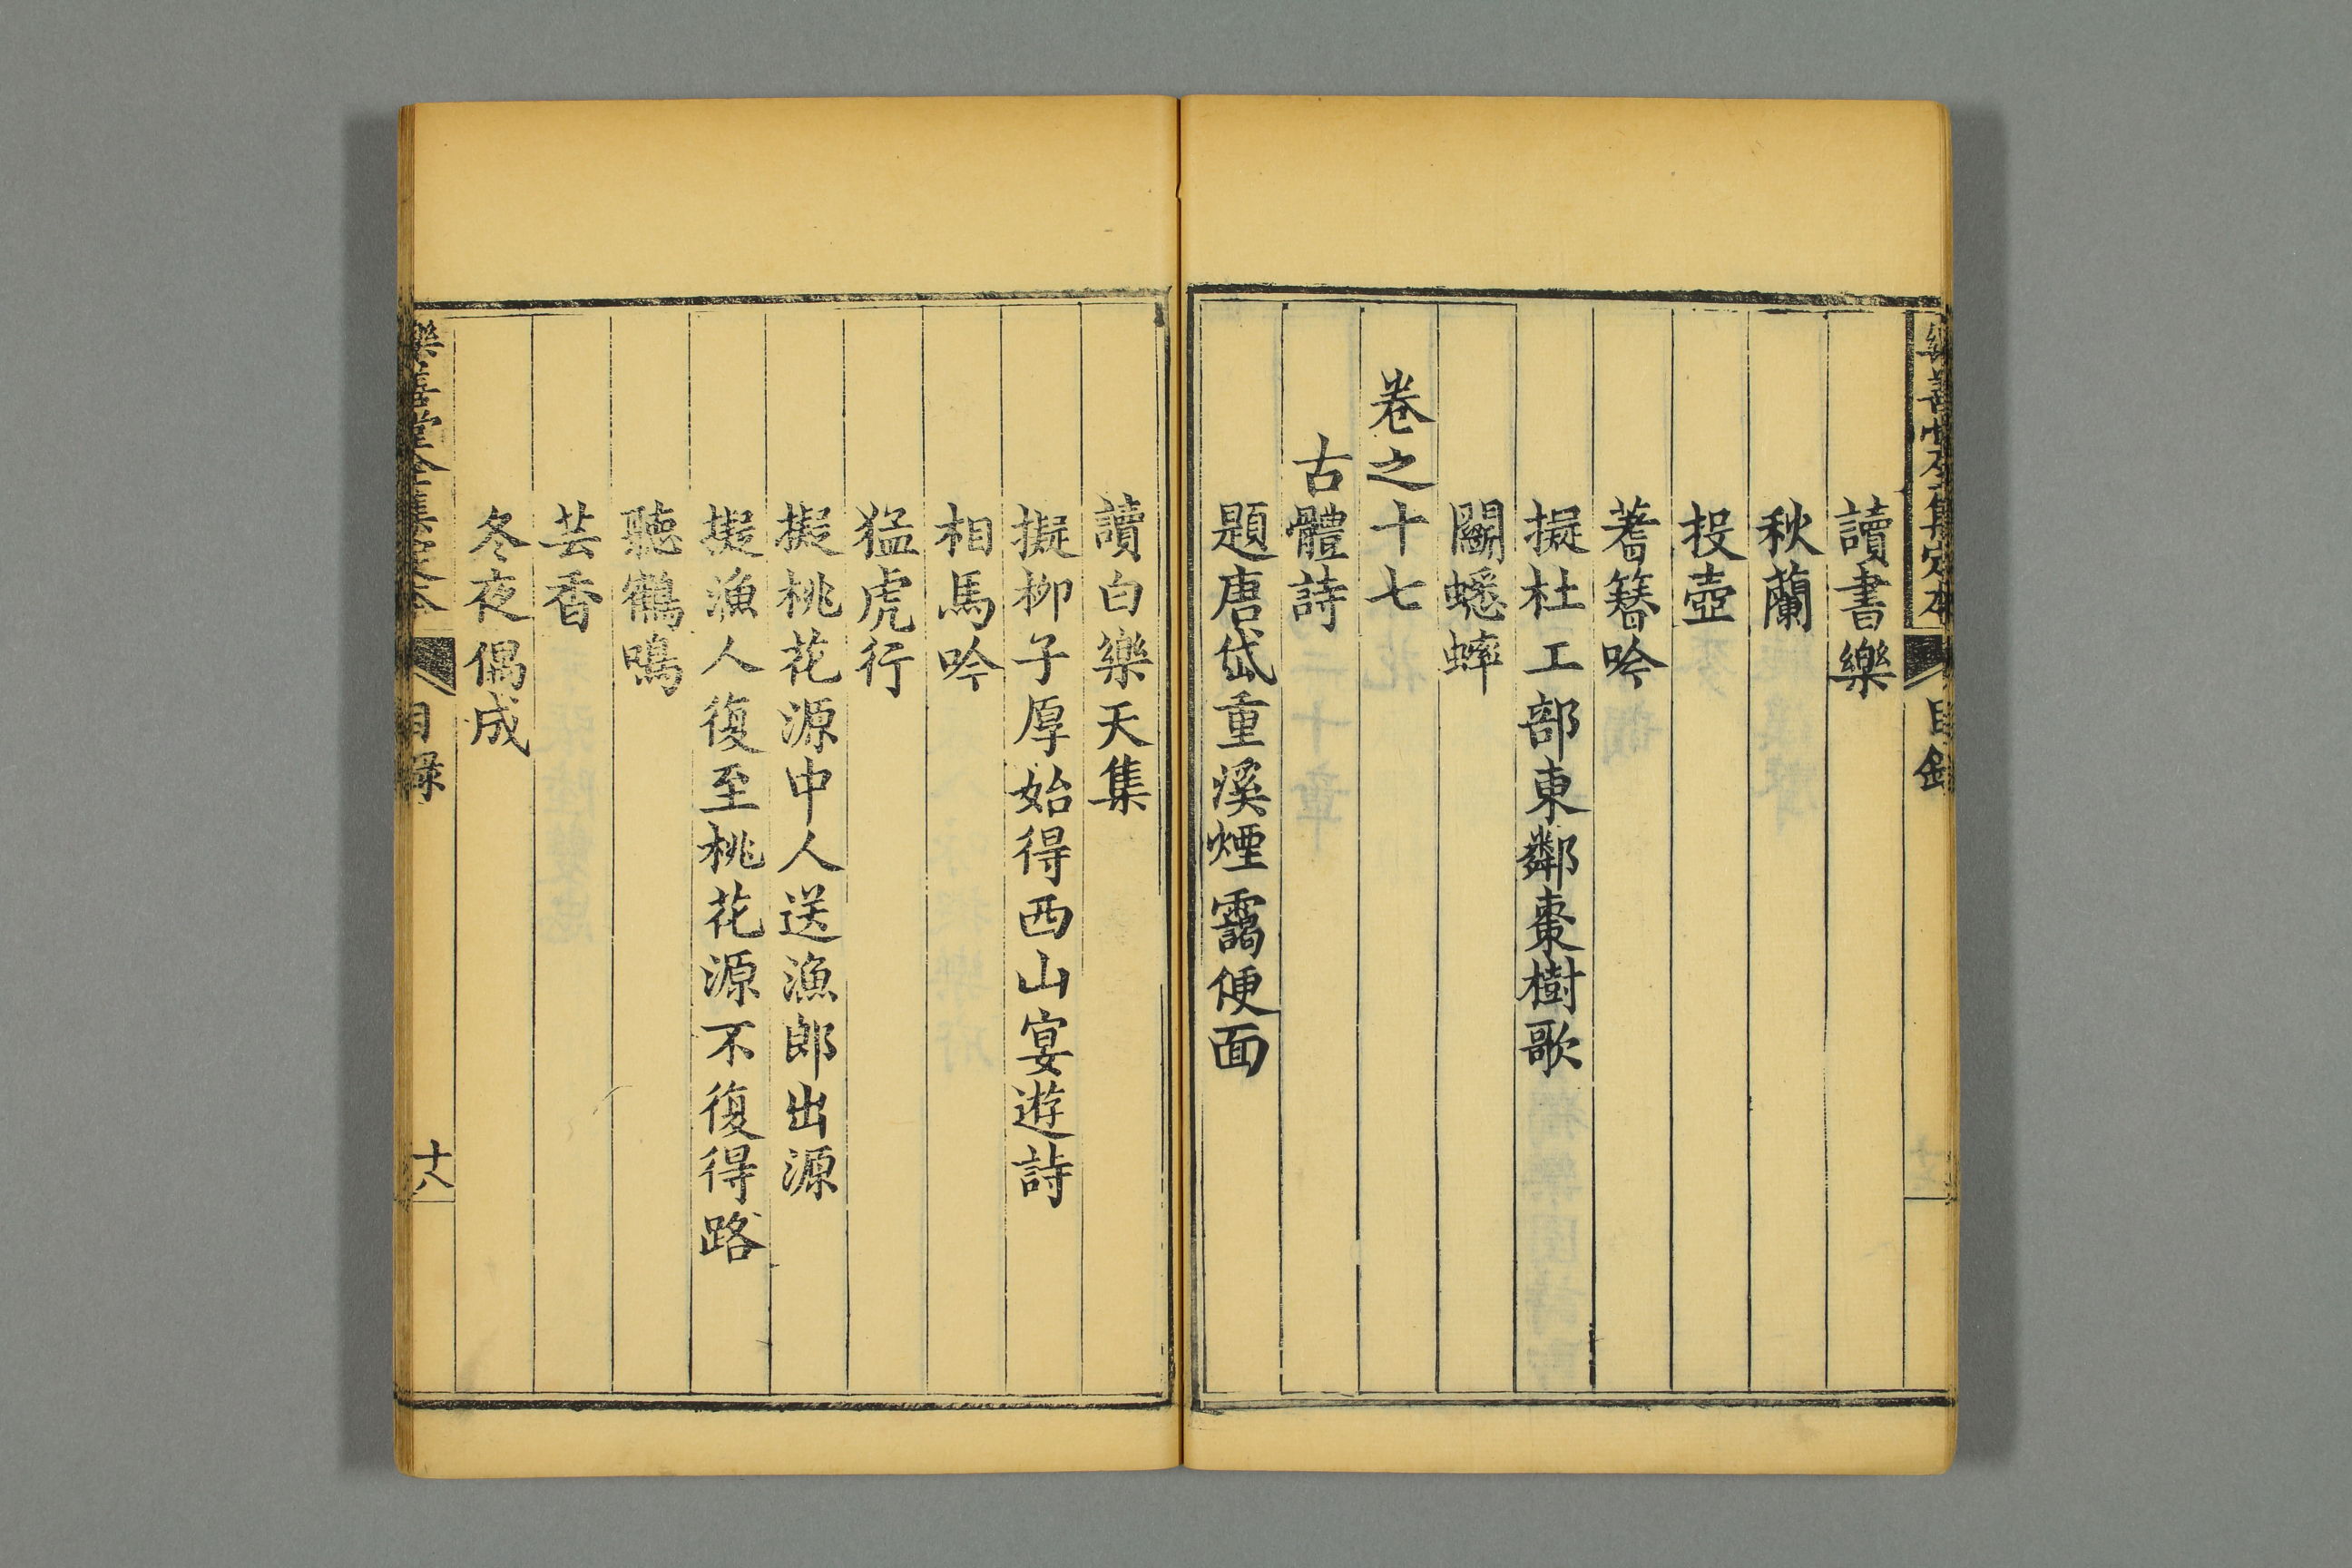 樂善堂全集定本
目錄
讀書樂
秋蘭
投壺
蓍簪吟
擬杜工部東鄰棗樹歌
鬬蟋蟀
卷之十七
古體詩
題唐岱重溪煙靄便面
讀白樂天集
擬柳子厚始得西山宴遊詩
相馬吟
猛虎行
擬桃花源中人送漁郎出源
擬漁人復至桃花源不復得路
聽鶴鳴
芸香
冬夜偶成
樂善堂全集定本
目錄
十八